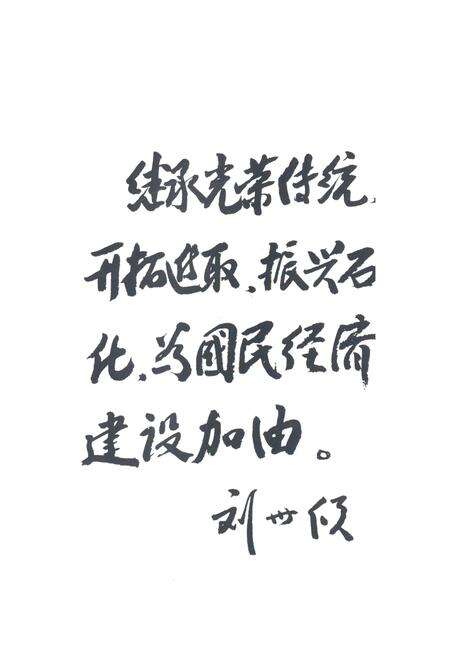 继承光荣传统,
开拓进取,振兴石
化,为國民经济
建设加油。
刘世